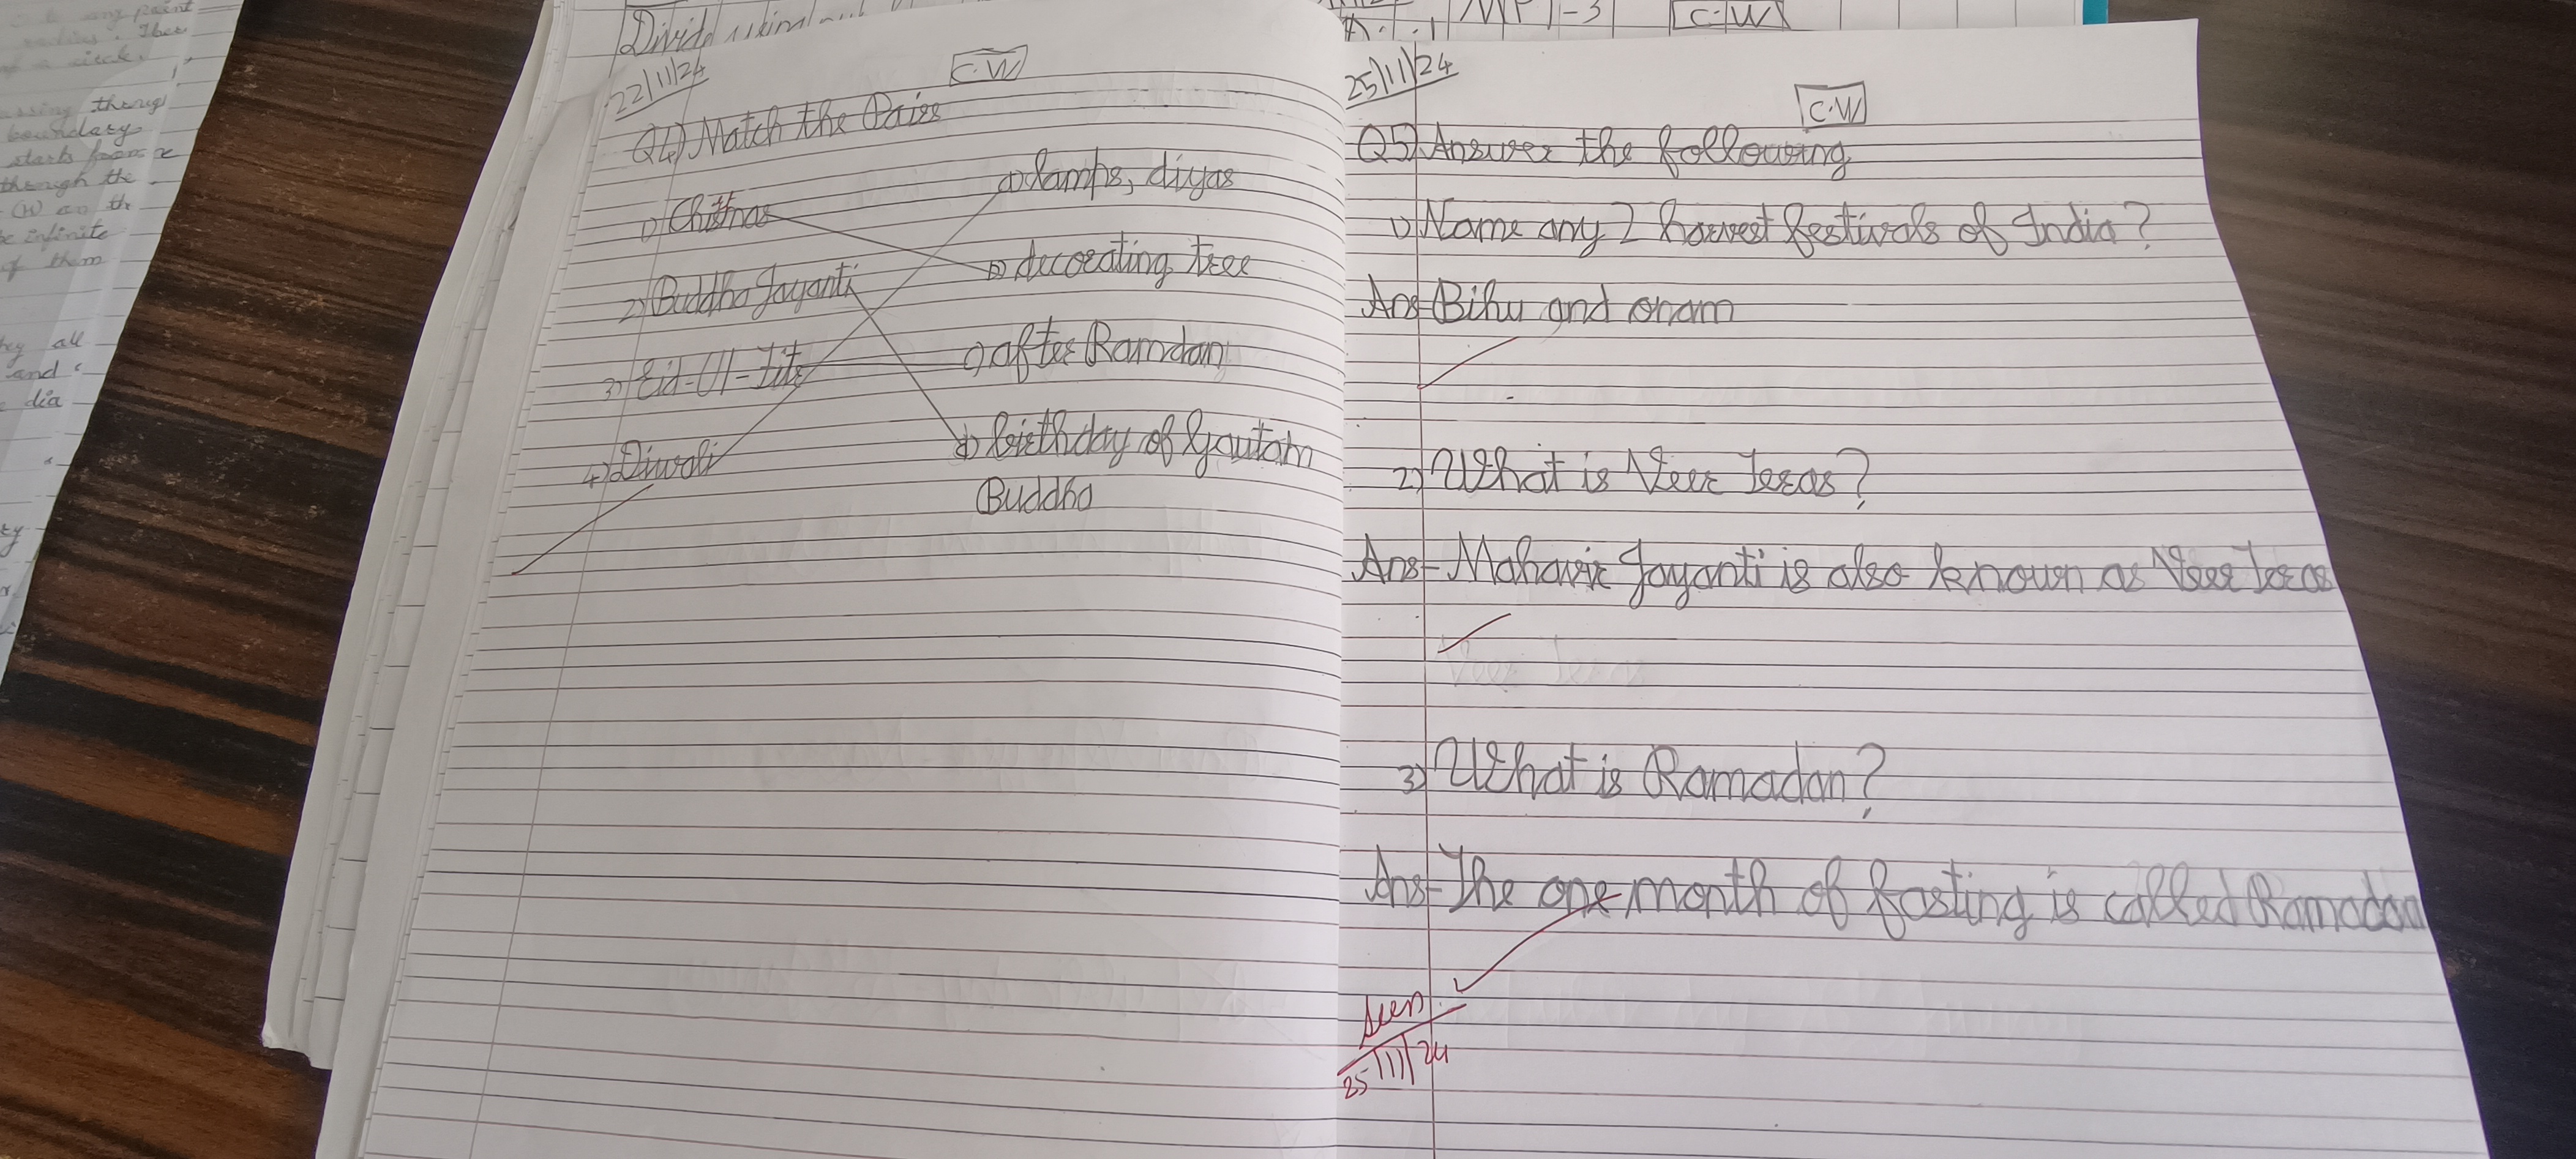 ing point
radius. Then
of a circle.
boundary
starts from
through the
be infinite
of them
all
and
dia
Divid
22/11/24
C.W
Q4) Match the Pairs
1) Chitmas
a) lamps, diyas
2) Buddha Jayanti
b) decorating tree
3) Eid-Ul-Fitr
c) after Ramdan
4) Diwali
d) birthday of Gautam
Buddha
-3 C.W
25/11/24
C.W
Q5) Answer the following
1) Name any 2 harvest festivals of India?
Ans- Bihu and onam
2) What is Veer Teras?
Ans- Mahavir Jayanti is also known as Veer Teras
Veer Teras
3) What is Ramadan?
Ans- The one month of fasting is called Ramadan
Seen
25/11/24